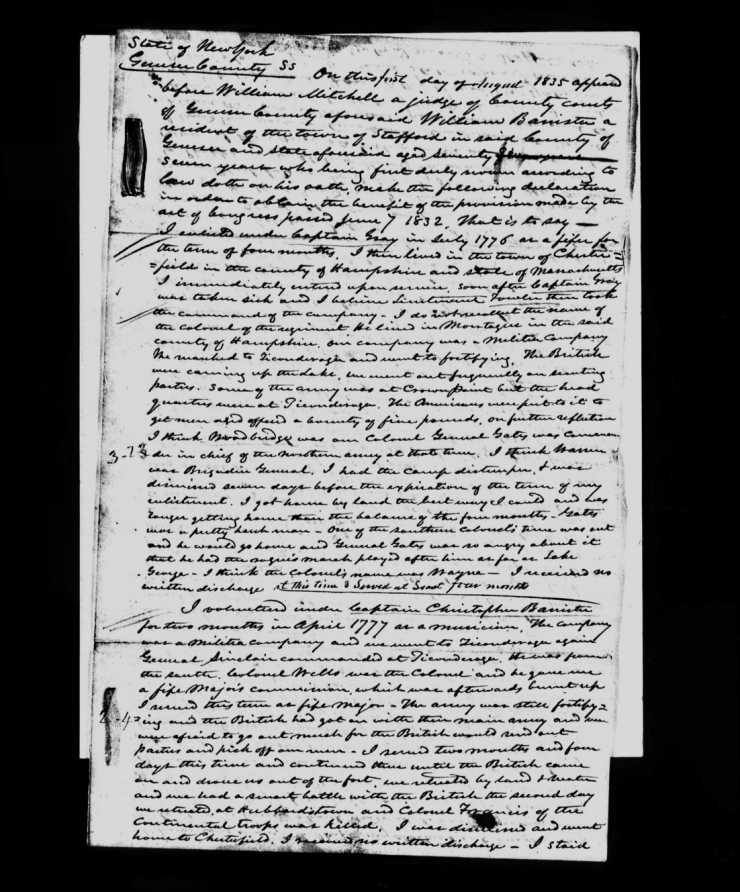 State of New York
Genesee County SS
On this first day of August 1835 appeared
before William Mitchell a judge of County courts
of Genesee County aforesaid William Banister a
resident of the town of Stafford in said County of
Genesee and State aforesaid aged seventy
seven years who being first duly sworn according to
law doth on his oath, make the following declaration
in order to obtain the benefit of the provision made by the
act of Congress passed June 7 1832. That is to say —
I enlisted under Captain Gray in July 1776 as a fifer for
the term of four months. I then lived in the town of Chester=
=field in the county of Hampshire and state of Massachusetts
I immediately entered upon service. Soon after Captain Gray
was taken sick and I believe Lieutenant Fowler then took
the command of the company - I do not recollect the name of
the colonel of the regiment He lived in Montague in the said
county of Hampshire. Our company was a Militia Company
We marched to Ticonderoga and went to fortifying. The British
were coming up the lake, we went out frequently on scouting
parties. Some of the army was at Crown Point but the head
quarters were at Ticonderoga. The Americans were put to it to
get men and offered a bounty of five pounds, on further reflection
I think Woodbridge was our Colonel General Gates was comman
3-23 der in chief of the northern army at that time. I think Warner
was Brigadier General. I had the camp distemper, & was
dismissed seven days before the expiration of the term of my
enlistment. I got home by land the best way I could and was
longer getting home than the balance of the four months - Gates
was a pretty harsh man - One of the southern Colonel's time was out
and he would go home and General Gates was so angry about it
that he had the rogue's march played after him as far as Lake
George - I think the Colonel's name was Wayne - I received no
written discharge at this time & Served at Least four month
I volunteered under Captain Christopher Banister
for two months in April 1777 as a musician. The company
was a Militia company and we went to Ticonderoga again
General Sinclair commanded at Ticonderoga. He was from
the south. Colonel Wells was the Colonel and he gave me
a fife Major's commission, which was afterwards burnt up
I served this term as fife Major - The army was still fortify=
2-4 =ing and the British had got on with their main army and we
were afraid to go out much for the British would send out
parties and pick off our men - I served two months and four
days this time and continued there until the British came
on and drove us out of the fort, we retreated by land & water
and we had a smart battle with the British the second day
we retreated, at Hubbardstown and Colonel Francis of the
Continental troops was killed. I was dismissed and went
home to Chesterfield. I received no written discharge - I staid